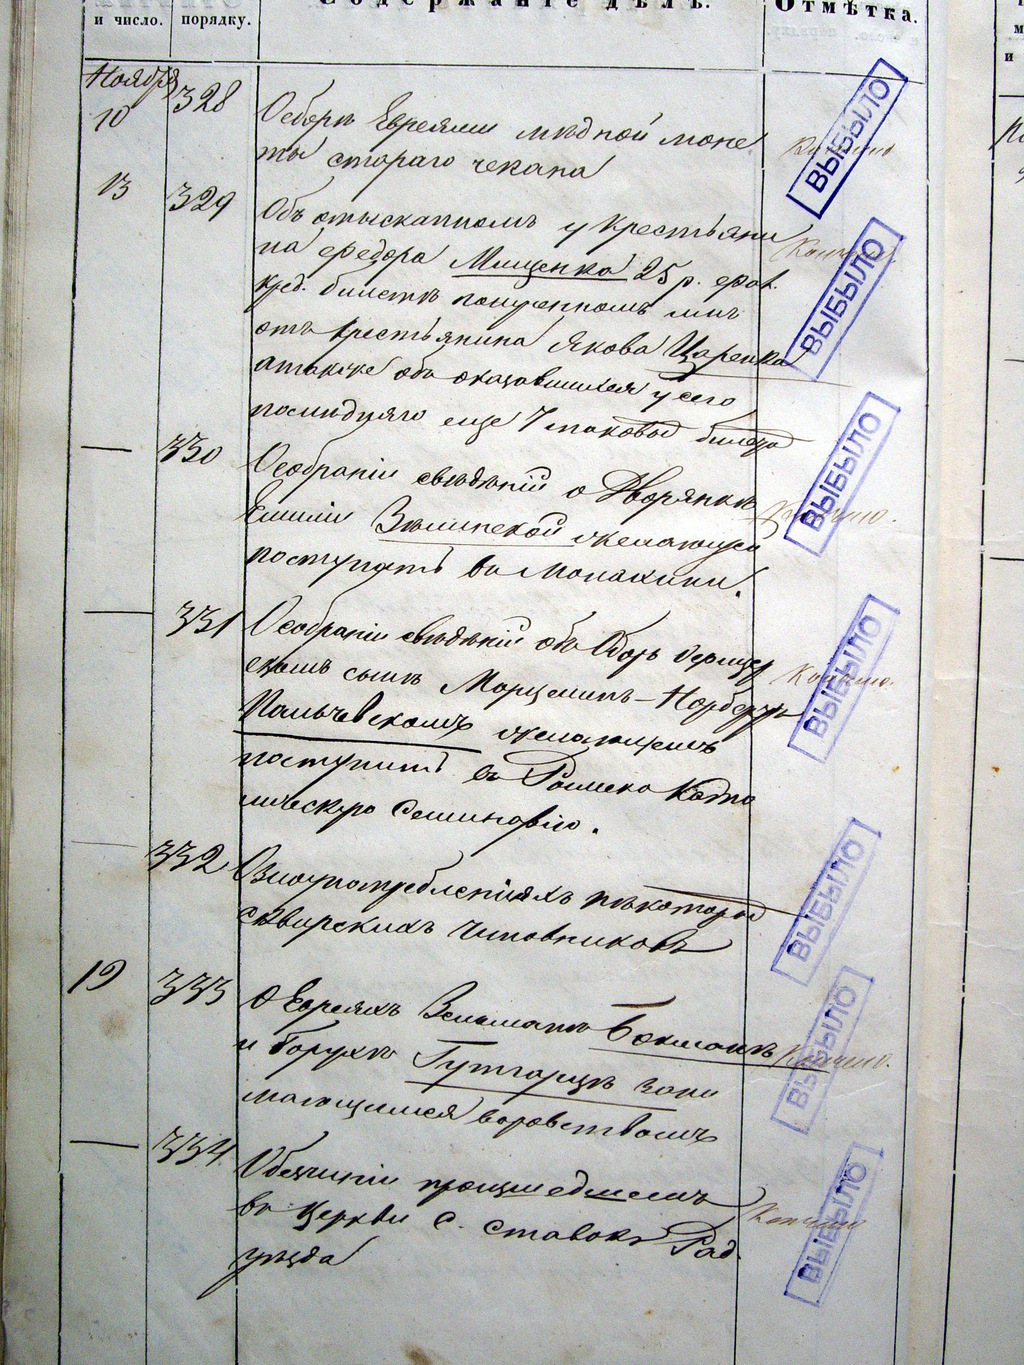 и число.
порядку.
Содержаніе дѣлъ.
Отмѣтка.
Ноября
10
328
О сборѣ Евреями мѣдной моне
ты стараго чекана
ВЫБЫЛО
13
329
Объ отысканномъ у крестьяни
на Федора Мищенка 25 р. фал.
кред. билетѣ полученномъ имъ
отъ крестьянина Якова Царенка
а также объ оказавшихся у сего
послѣдняго еще 7 таковыхъ билетахъ
Кончено.
ВЫБЫЛО
—
330
О собраніи свѣдѣній о Дворянкѣ
Эмиліи желающей
поступить въ Монахини.
Кончено.
ВЫБЫЛО
—
331
О собраніи свѣдѣній объ Оберъ Офицер
скомъ сынѣ Марцелинѣ-Норбертѣ
Пальчевскомъ желающемъ
поступить въ Римско Като
лическую Семинарію.
Кончено.
ВЫБЫЛО
—
332
О злоупотребленіяхъ нѣкоторыхъ
сквирскихъ чиновниковъ
ВЫБЫЛО
19
333
О Евреяхъ Зельманѣ Бокманѣ
и Борухѣ Гутгарцѣ зани
мающимися воровствомъ
Кончено.
ВЫБЫЛО
—
334
О безчиніи произшедшемъ
въ Церкви с. Ставокъ Рад.
уѣзда
Кончено
ВЫБЫЛО